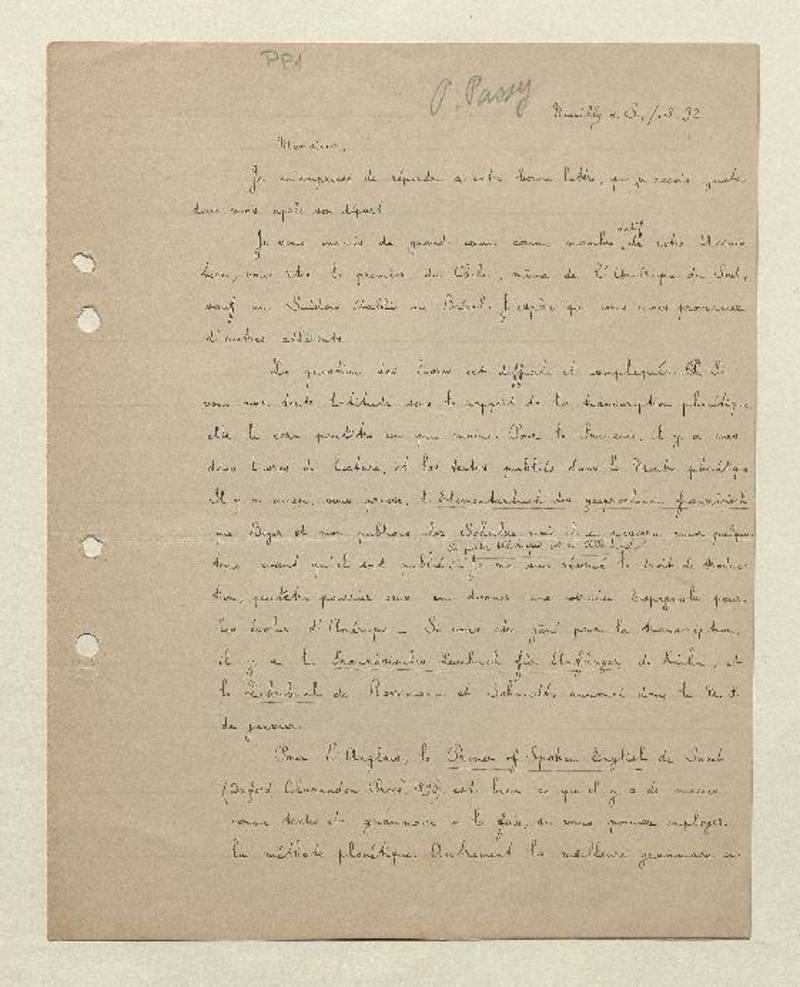 PP1
P. Passy
Neuilly s. S., 1.3.92
Monsieur,
Je m'empresse de répondre à votre bonne lettre, que je reçois
deux mois après son départ.
Je vous de grand cœur comme membre actif de notre
vous êtes le premier du Chili, même de l'Amérique du Sud,
sauf un Suédois au Brésil. J'espère que vous nous procurerez
d'autres adhérents.
La question des livres est difficile et compliquée. P. S.
vous avez toute latitude sous le rapport de la transcription phonétique,
elle le sera peutêtre un peu moins. Pour le Français, il y a mes
deux livres de lecture, et les textes publiés dans le Maître phonétique
Il y a aussi, vous pensez, l'Elementarbuch des gesprochenen Französisch
que Beyer et moi publions
tems avant qu'il soit publié. Je me suis réservé le droit de traduc-
tion, peutêtre pourriez vous en donner une version Espagnole pour
les écoles d'Amérique. — Si vous êtes gêné pour la transcription,
il y a le Französisches Lesebuch für Anfänger de Kühn, et
le Lehrbuch de Rossmann et Schmidt, annoncé dans le M. F.
de janvier.
Pour l'Anglais, le Primer of Spoken English de Sweet
(Oxford Clarendon Press, est bien ce qu'il y a de mieux
comme texte et grammaire à la fois, si vous pouvez employer
la méthode phonétique. Autrement la meilleure grammaire